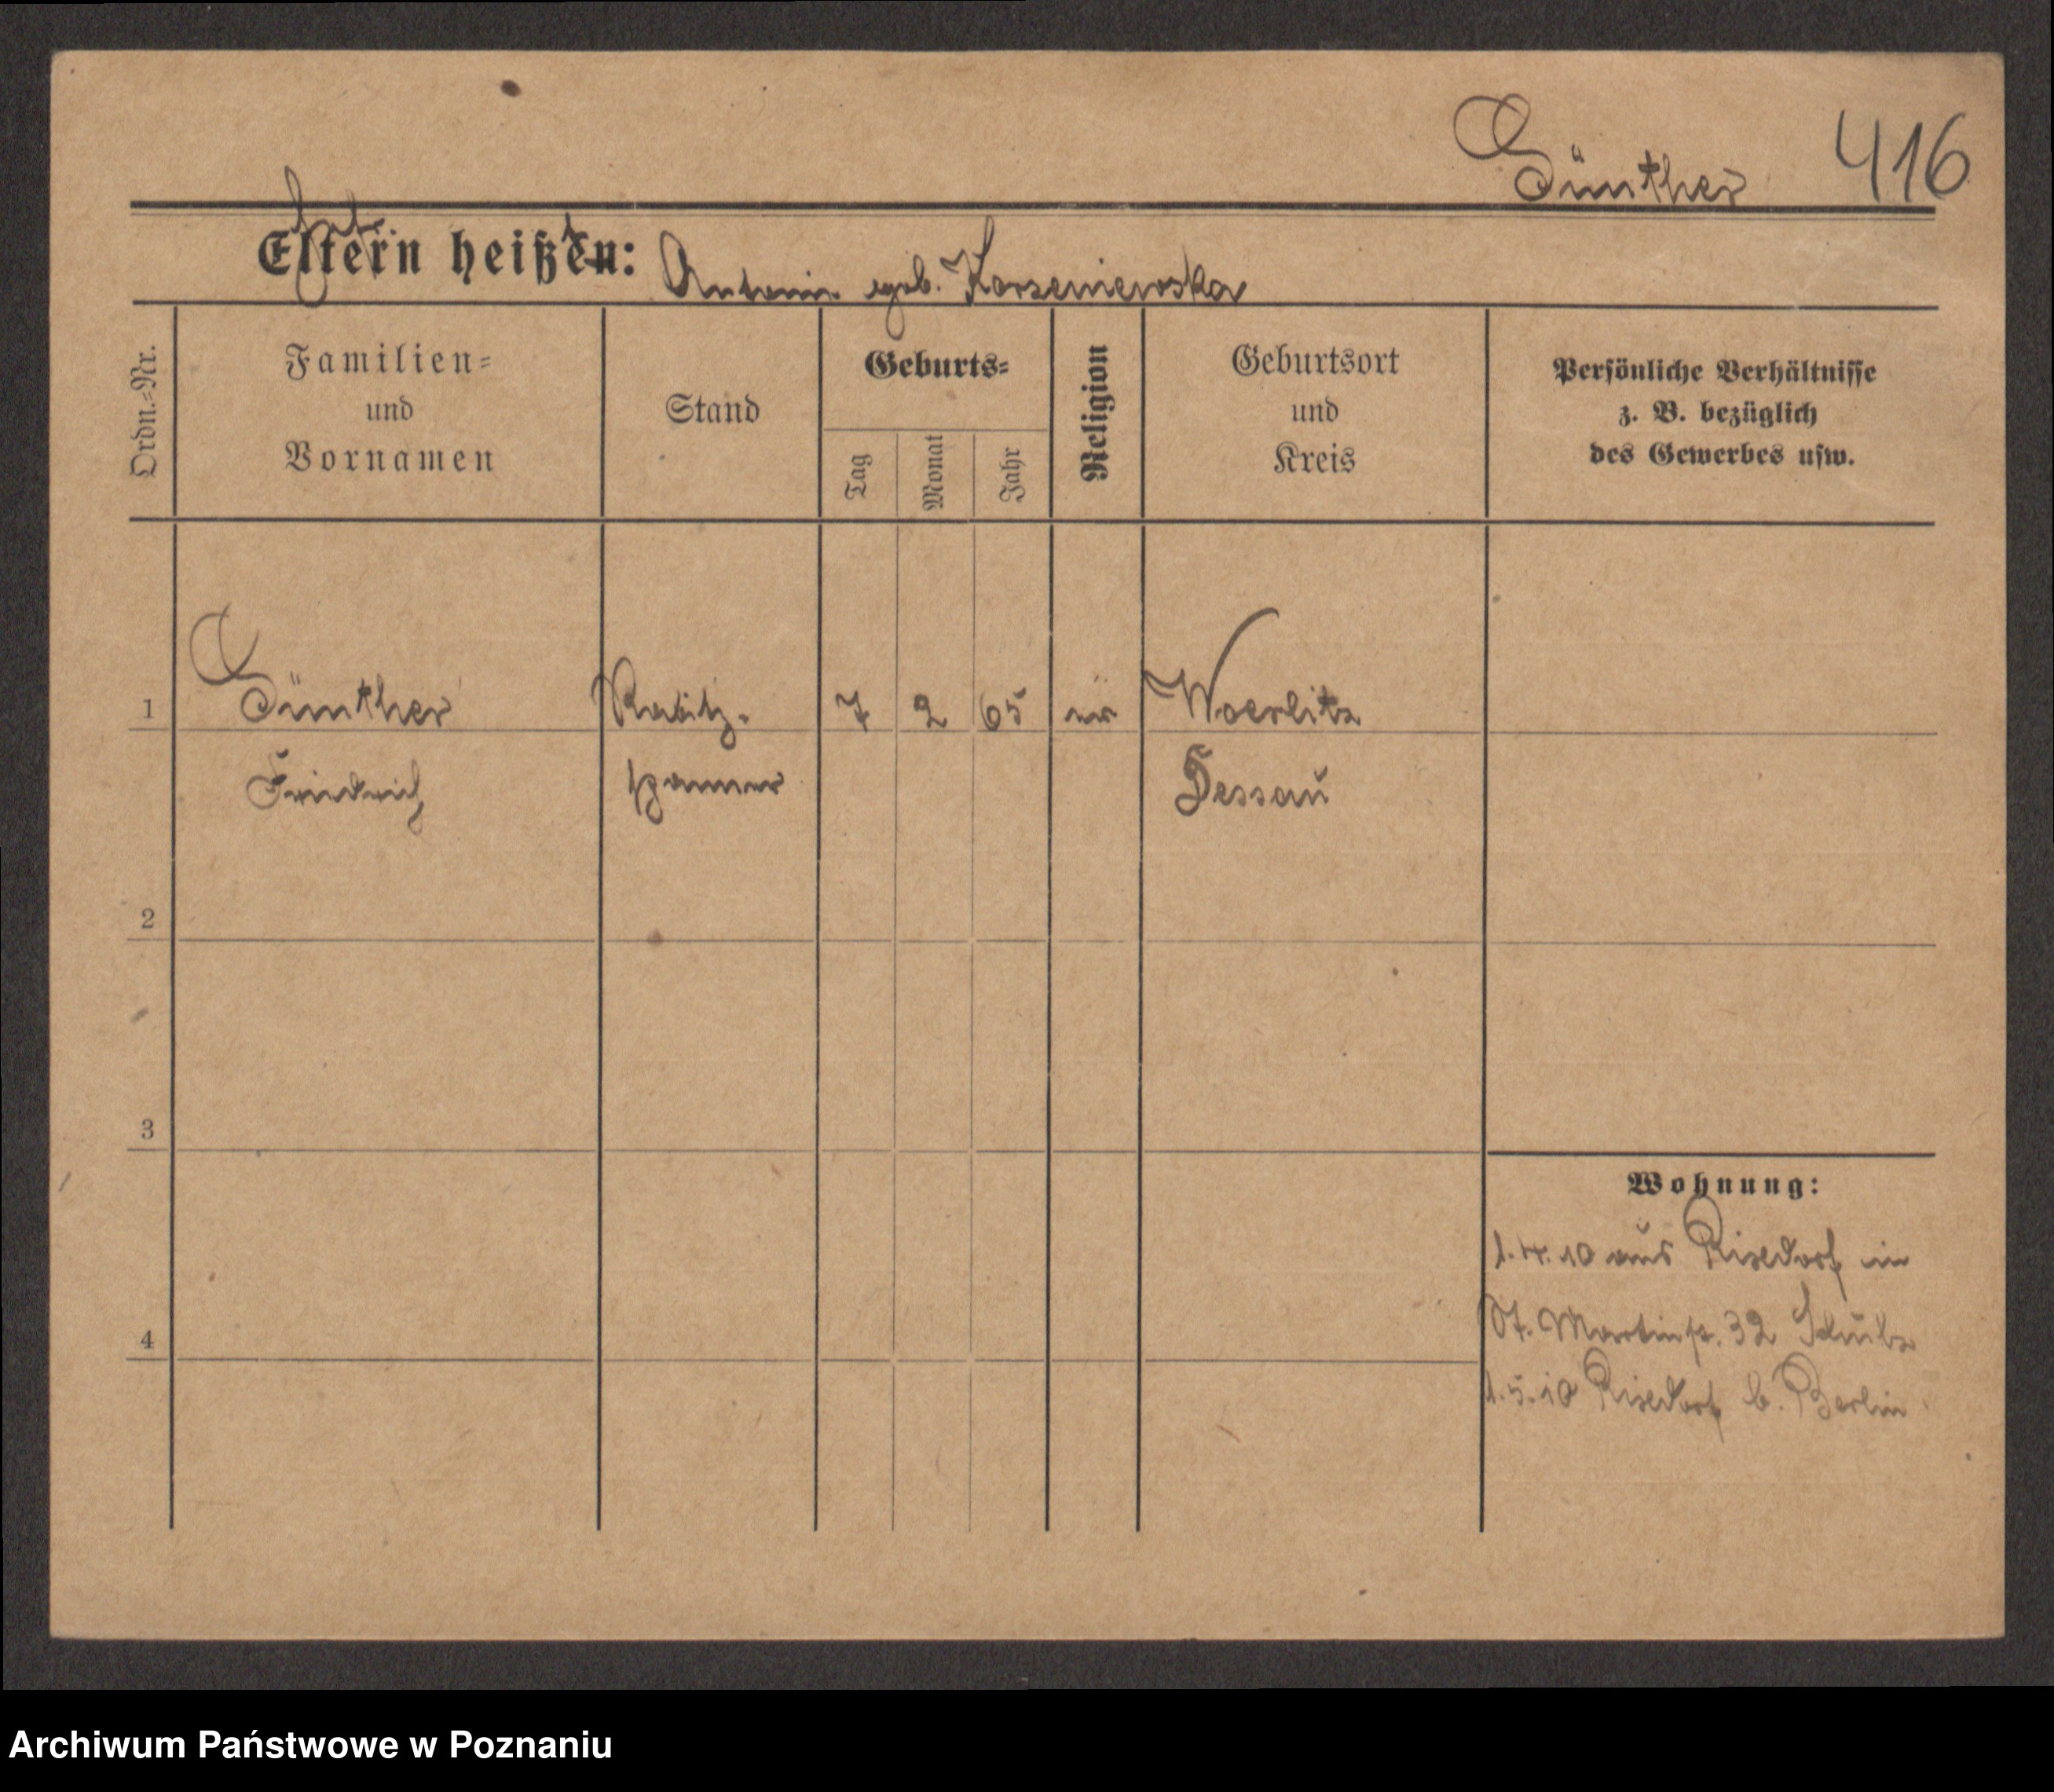 Günther 416
Eltern heißen: Antonie geb. Korzeniewska
Ordn.-Nr.
Familien-
und
Vornamen
Stand
Geburts-
Tag
Monat
Jahr
Religion
Geburtsort
und
Kreis
Persönliche Verhältnisse
z. B. bezüglich
des Gewerbes usw.
1 Günther Rabitz- 7 2 65 ev Woerlitz
Friedrich spanner Dessau
2
3
4
Wohnung:
1.4.10 aus Rixdorf in
St. Martinstr. 32 Schulz
1.5.10 Rixdorf b. Berlin
Archiwum Państwowe w Poznaniu